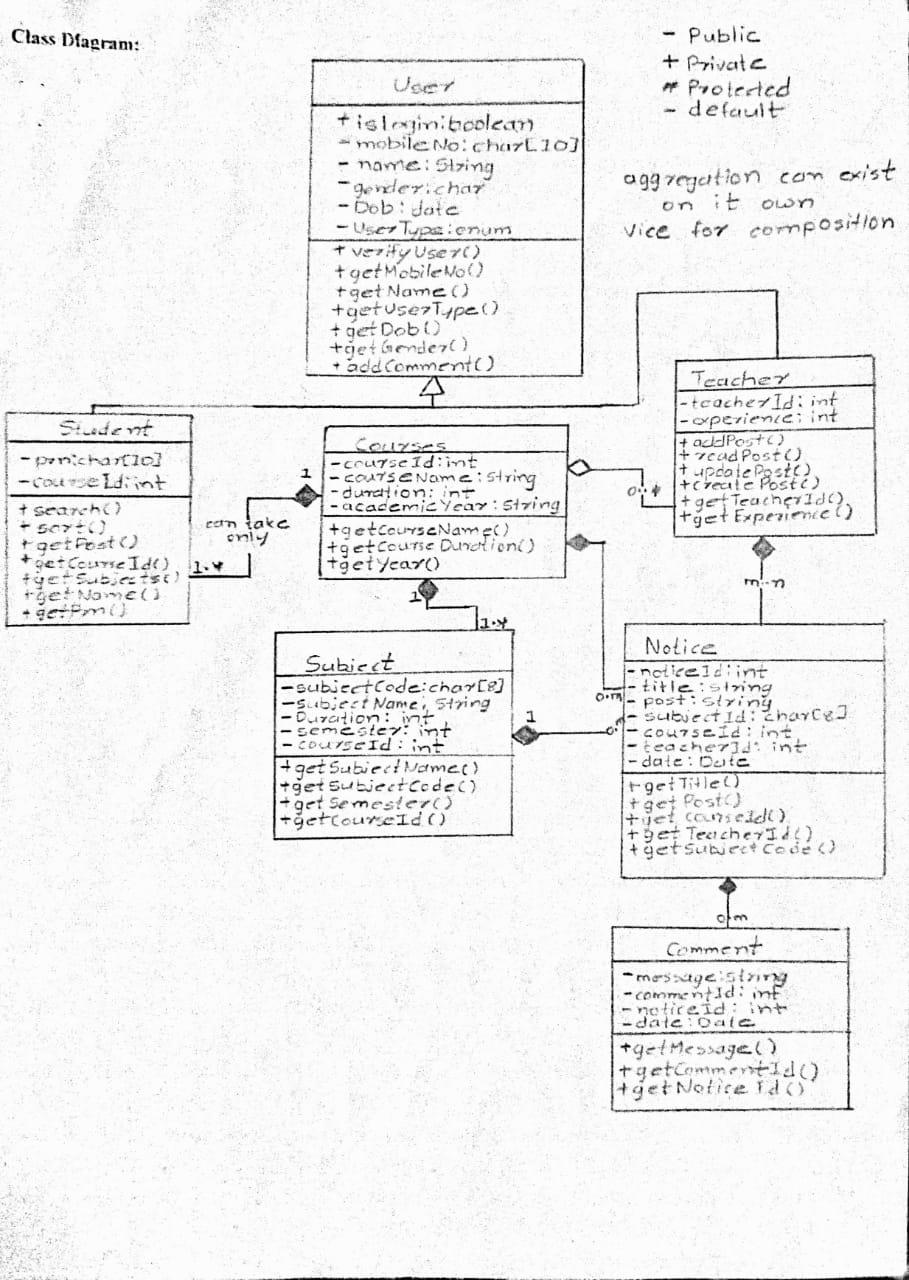 Class Diagram:
- Public
+ Private
# Protected
- default
aggregation can exist
on it own
vice for composition
User
+ islogin:boolean
- mobileNo:char[10]
- name:String
- gender:char
- Dob:date
- UserType:enum
+ verifyUser()
+getMobileNo()
+getName()
+getUserType()
+getDob()
+getGender()
+ addComment()
Teacher
-teacherId:int
-experience:int
+addPost()
+readPost()
+updatePost()
+createPost()
+getTeacherId()
+getExperience()
Student
-prn:char[10]
-courseId:int
+ search()
+ sort()
+ getPost()
+getCourseId()
+getSubjects()
+getName()
+getPrn()
1
can take
only
1..*
Courses
-courseId:int
-courseName:String
-duration:int
-academicYear:String
+getCourseName()
+getCourseDuration()
+getYear()
0..*
m..n
1
1..*
Subject
-subjectCode:char[8]
-subjectName:String
-Duration:int
-semester:int
-courseId:int
+getSubjectName()
+getSubjectCode()
+getSemester()
+getCourseId()
1
0..m
Notice
-noticeId:int
-title:string
- post:string
-subjectId:char[8]
-courseId:int
-teacherId:int
-date:Date
+getTitle()
+get Post()
+get courseId()
+getTeacherId()
+getSubjectCode()
0..m
Comment
-message:String
-commentId:int
-noticeId:int
-date:Date
+getMessage()
+getCommentId()
+getNotice Id()